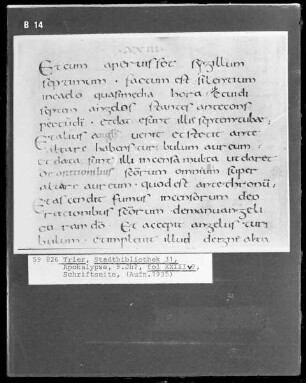 B 14
XXIII
Et cum aperuisset sigillum
septimum · factum est silentium
in caelo quasi media hora · Et uidi
septem angelos stantes ante cons
pectu di · et dat e sunt illis septem tubae ·
Et alius angls uenit et stetit ante
altare habens turibulum aureum ·
et data sunt illi incensa multa ut daret
orationibus scorum omnium super
altare aureum · quod est ante thronu ·
Et ascendit fumus incensorum de o
rationibus scorum de manu angeli
coram do · Et accepit angelus turi
bulum · et impleuit illud de igne alta
59 826 Trier, Stadtbibliothek 31,
Apokalypse, 9.Jh?, fol XXIII v,
Schriftseite, (Aufn.1935)